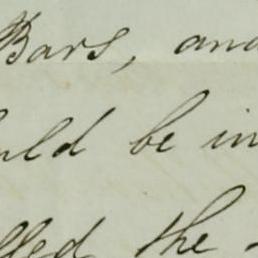 Bars, and
uld be in
lled the